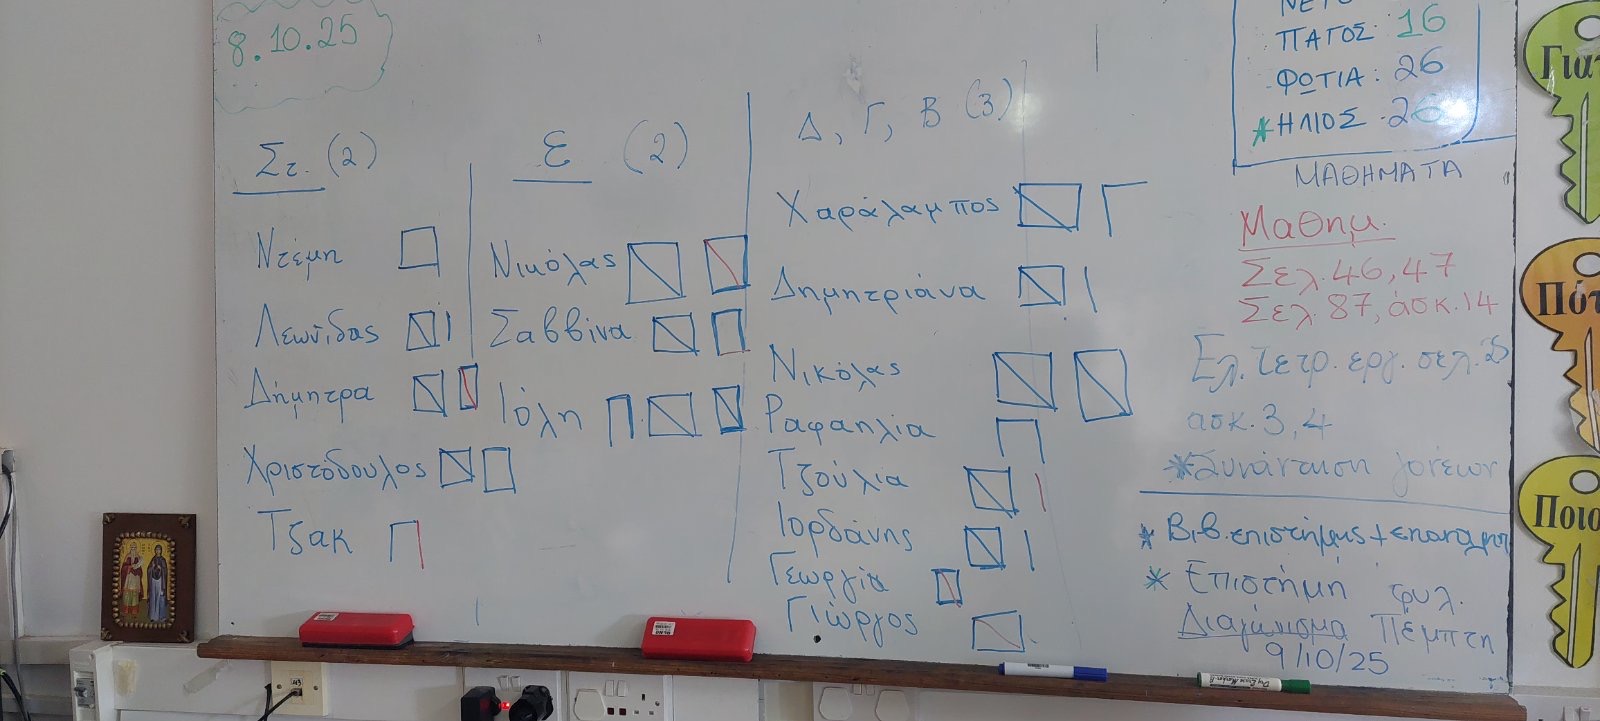 8.10.25
Στ. (2)
Ντέμη
Λεωνίδας
Δήμητρα
Χριστόδουλος
Τζακ
Ε (2)
Νικόλας
Σαββίνα
Ιόλη
Δ, Γ, Β (3)
Χαράλαμπος
Δημητριάνα
Νικόλας
Ραφαηλία
Τζούλια
Ιορδάνης
Γεωργία
Γιώργος
ΠΑΓΟΣ: 16
ΦΩΤΙΑ: 26
*ΗΛΙΟΣ 26
ΜΑΘΗΜΑΤΑ
Μαθημ.
Σελ. 46, 47
Σελ. 87, άσκ. 14
Ελ. τετρ. εργ. σελ. 25
ασκ. 3, 4
*Συνάντηση γονέων
* Βιβ. επιστήμης +
* Επιστήμη φυλ.
Διαγώνισμα Πέμπτη
9/10/25
Ποιο